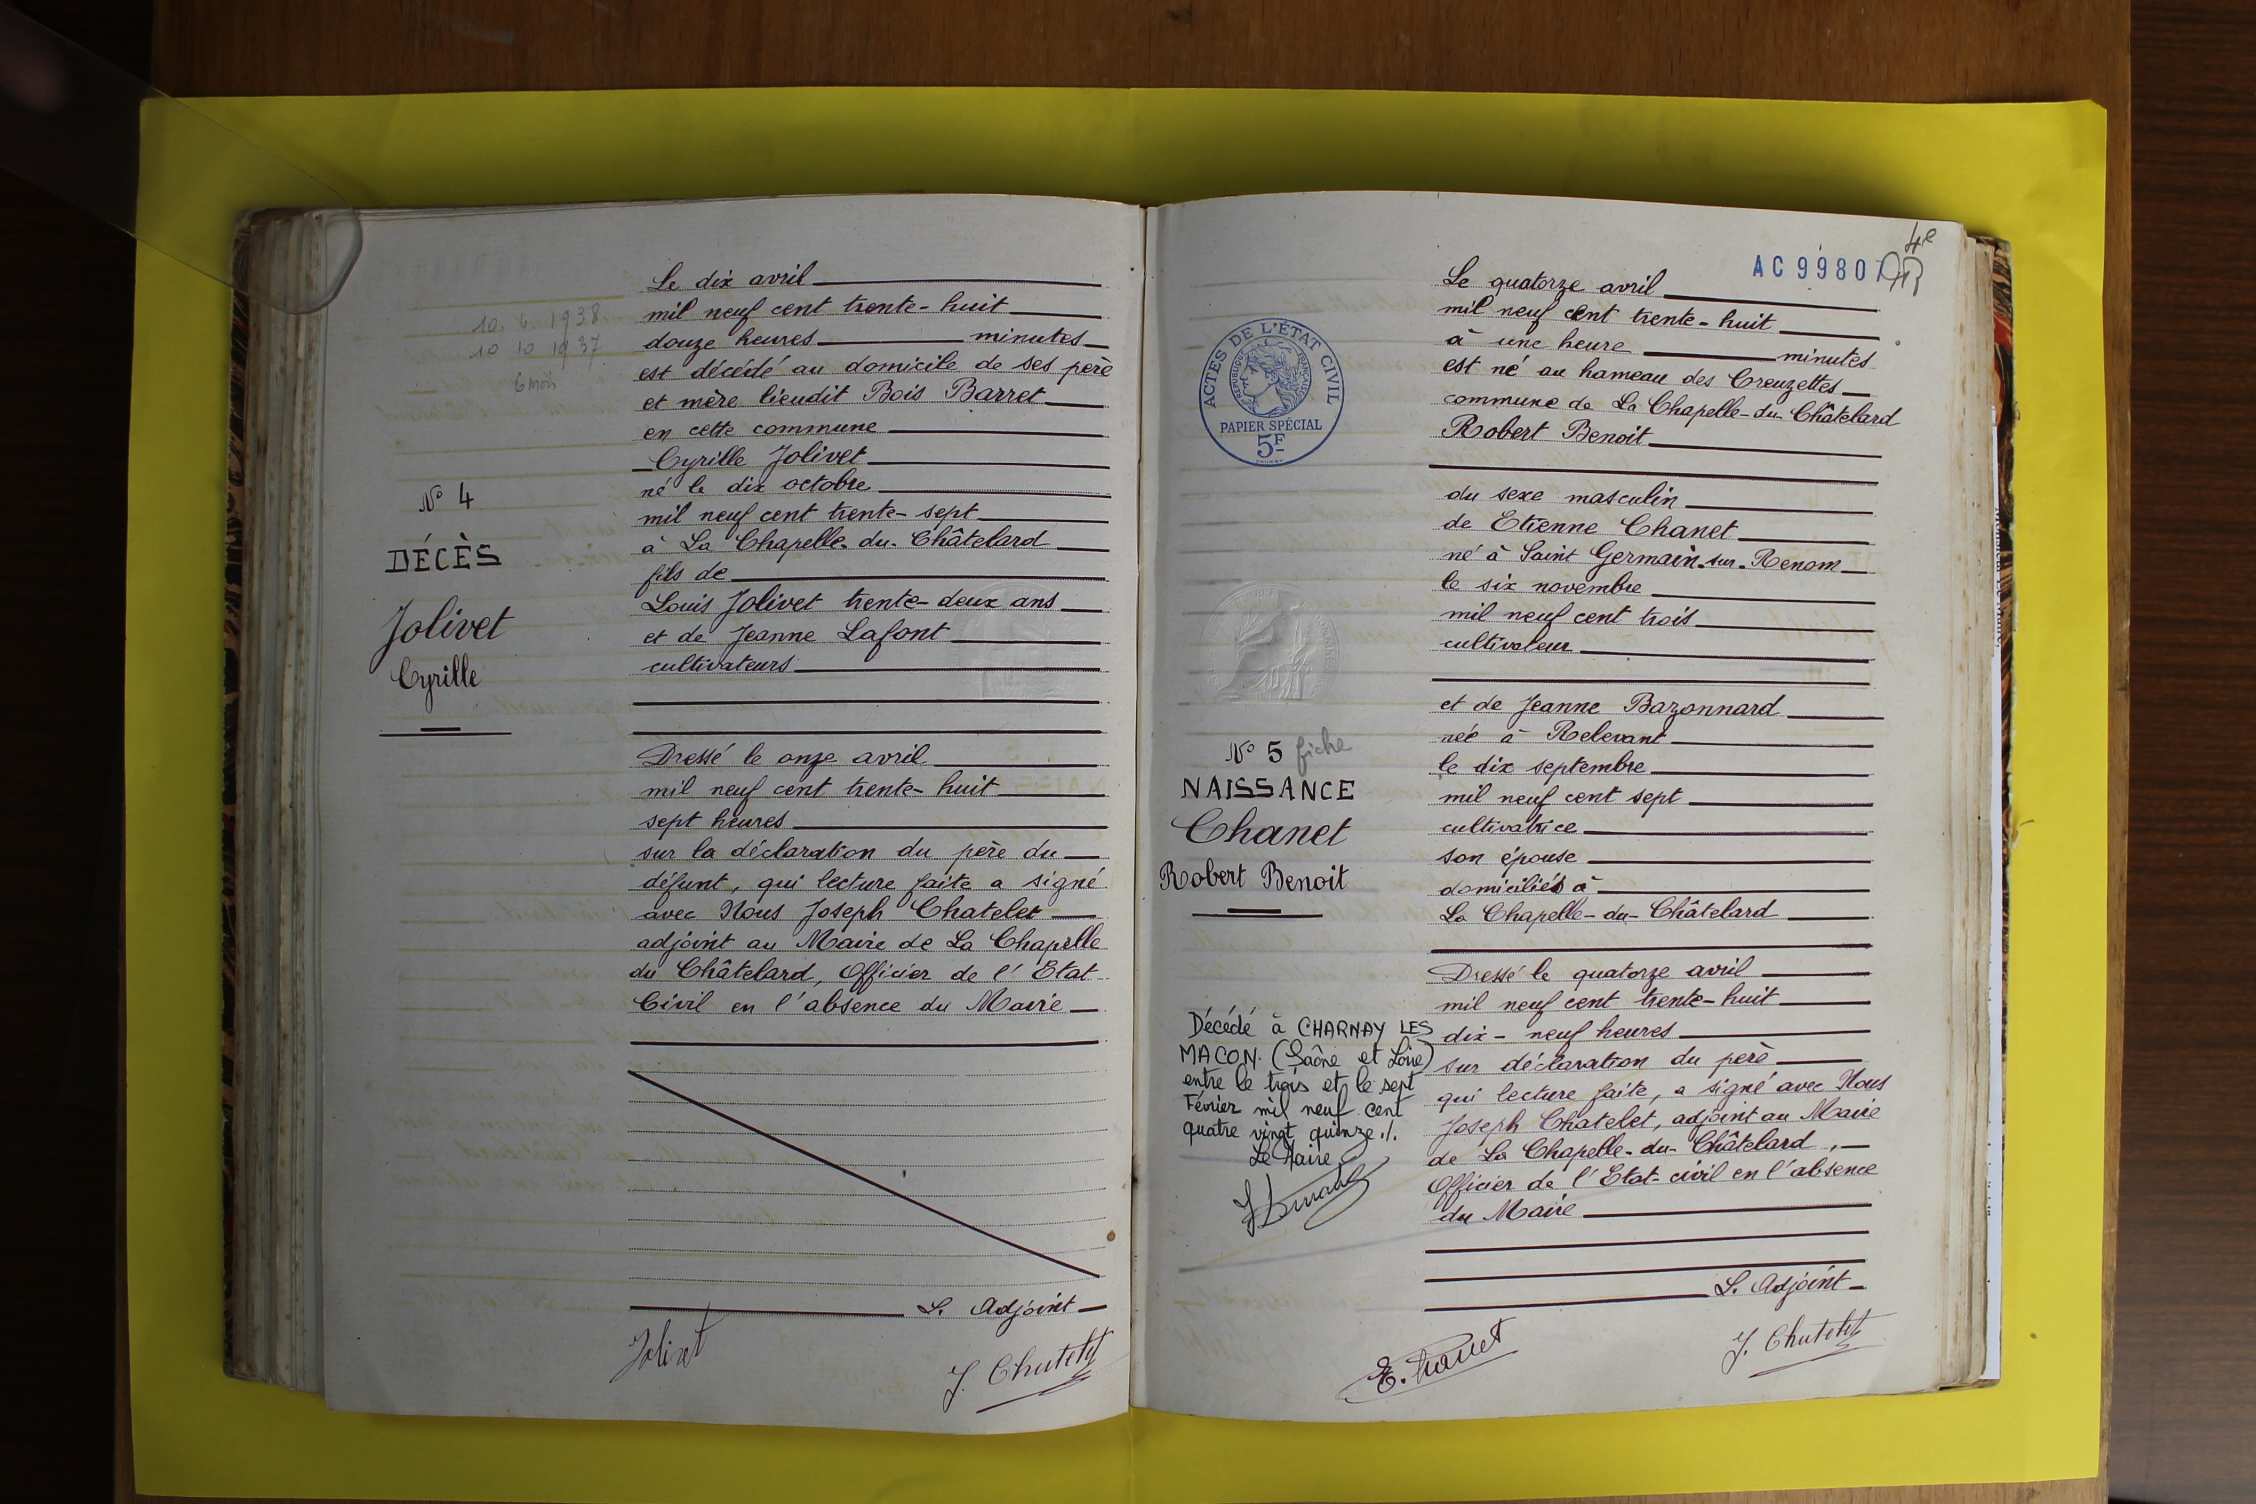 10. 4. 1938
10 10 1937
6 mois
N° 4
DÉCÈS
Jolivet
Cyrille
Le dix avril
mil neuf cent trente-huit
douze heures minutes
est décédé au domicile de ses père
et mère lieudit Bois Barret
en cette commune
Cyrille Jolivet
né le dix octobre
mil neuf cent trente-sept
à La Chapelle-du-Châtelard
fils de
Louis Jolivet trente-deux ans
et de Jeanne Lafont
cultivateurs
Dressé le onze avril
mil neuf cent trente-huit
sept heures
sur la déclaration du père du
défunt, qui lecture faite a signé
avec Nous Joseph Chatelet
adjoint au Maire de La Chapelle
du Châtelard, Officier de l'Etat
Civil en l'absence du Maire
L. Adjoint
Jolivet
J. Chatelet
4e
AC 99807
ACTES DE L'ÉTAT CIVIL
RÉPUBLIQUE FRANÇAISE
PAPIER SPÉCIAL
5F
N° 5 fiche
NAISSANCE
Chanet
Robert Benoit
Décédé à CHARNAY LES
MACON (Saône et Loire)
entre le trois et le sept
Février mil neuf cent
quatre vingt quinze ./.
Le Maire
Le quatorze avril
mil neuf cent trente-huit
à une heure minutes
est né au hameau des Creuzettes
commune de La Chapelle-du-Châtelard
Robert Benoit
du sexe masculin
de Etienne Chanet
né à Saint Germain-sur-Renom
le six novembre
mil neuf cent trois
cultivateur
et de Jeanne Bazonnard
née à Relevant
le dix septembre
mil neuf cent sept
cultivatrice
son épouse
domiciliés à
La Chapelle-du-Châtelard
Dressé le quatorze avril
mil neuf cent trente-huit
dix-neuf heures
sur déclaration du père
qui lecture faite, a signé avec Nous
Joseph Chatelet, adjoint au Maire
de La Chapelle-du-Châtelard,
Officier de l'Etat-civil en l'absence
du Maire
L. Adjoint
E. Chanet
J. Chatelet